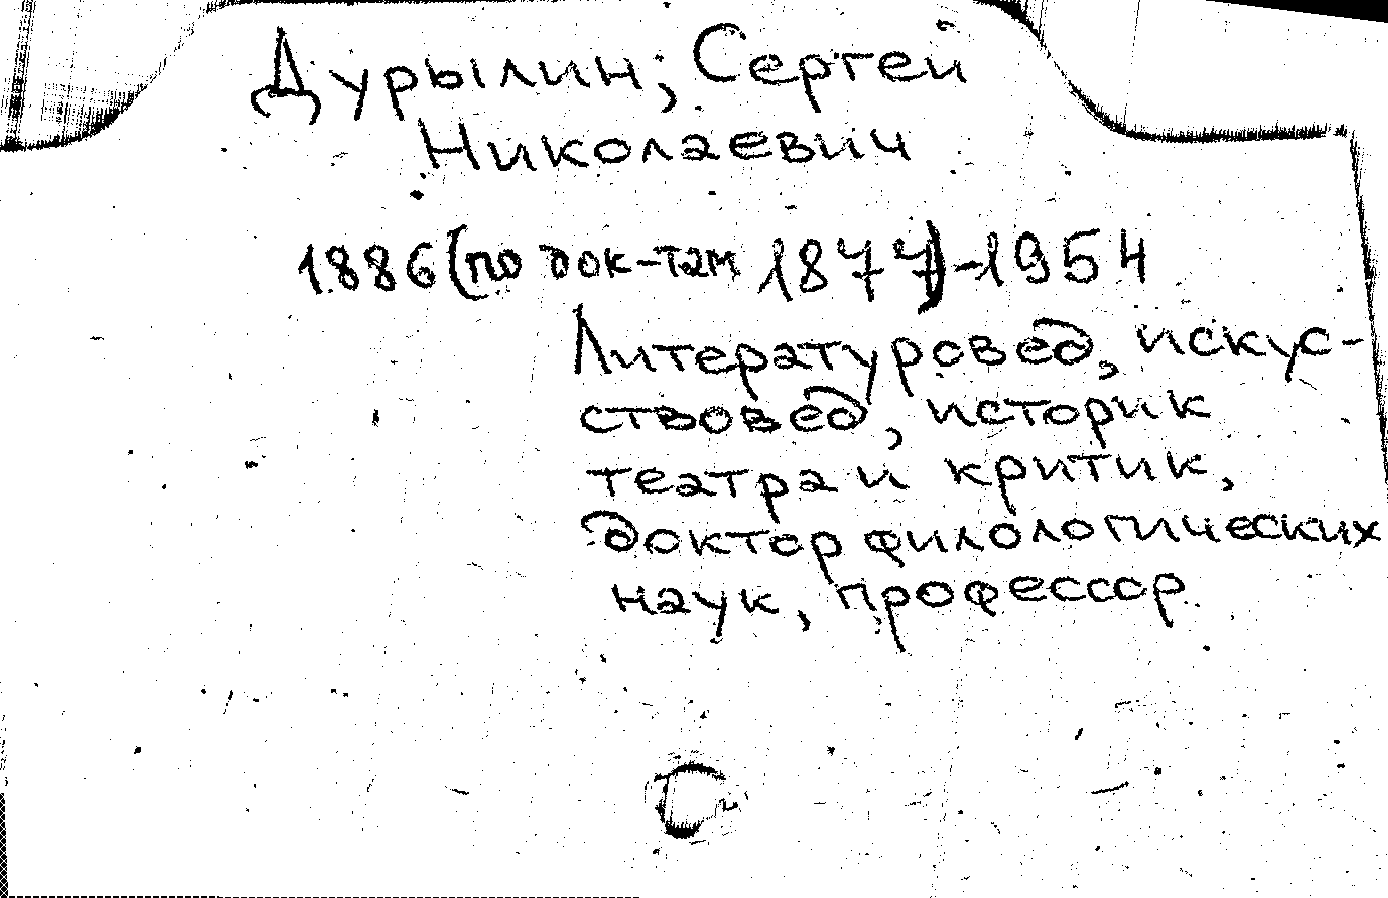 Дурылин, Сергей
Николаевич
1886 (по док-там 1877)-1954
Литературовед, искус-
ствовед, историк
театра и критик,
доктор филологических
наук, профессор